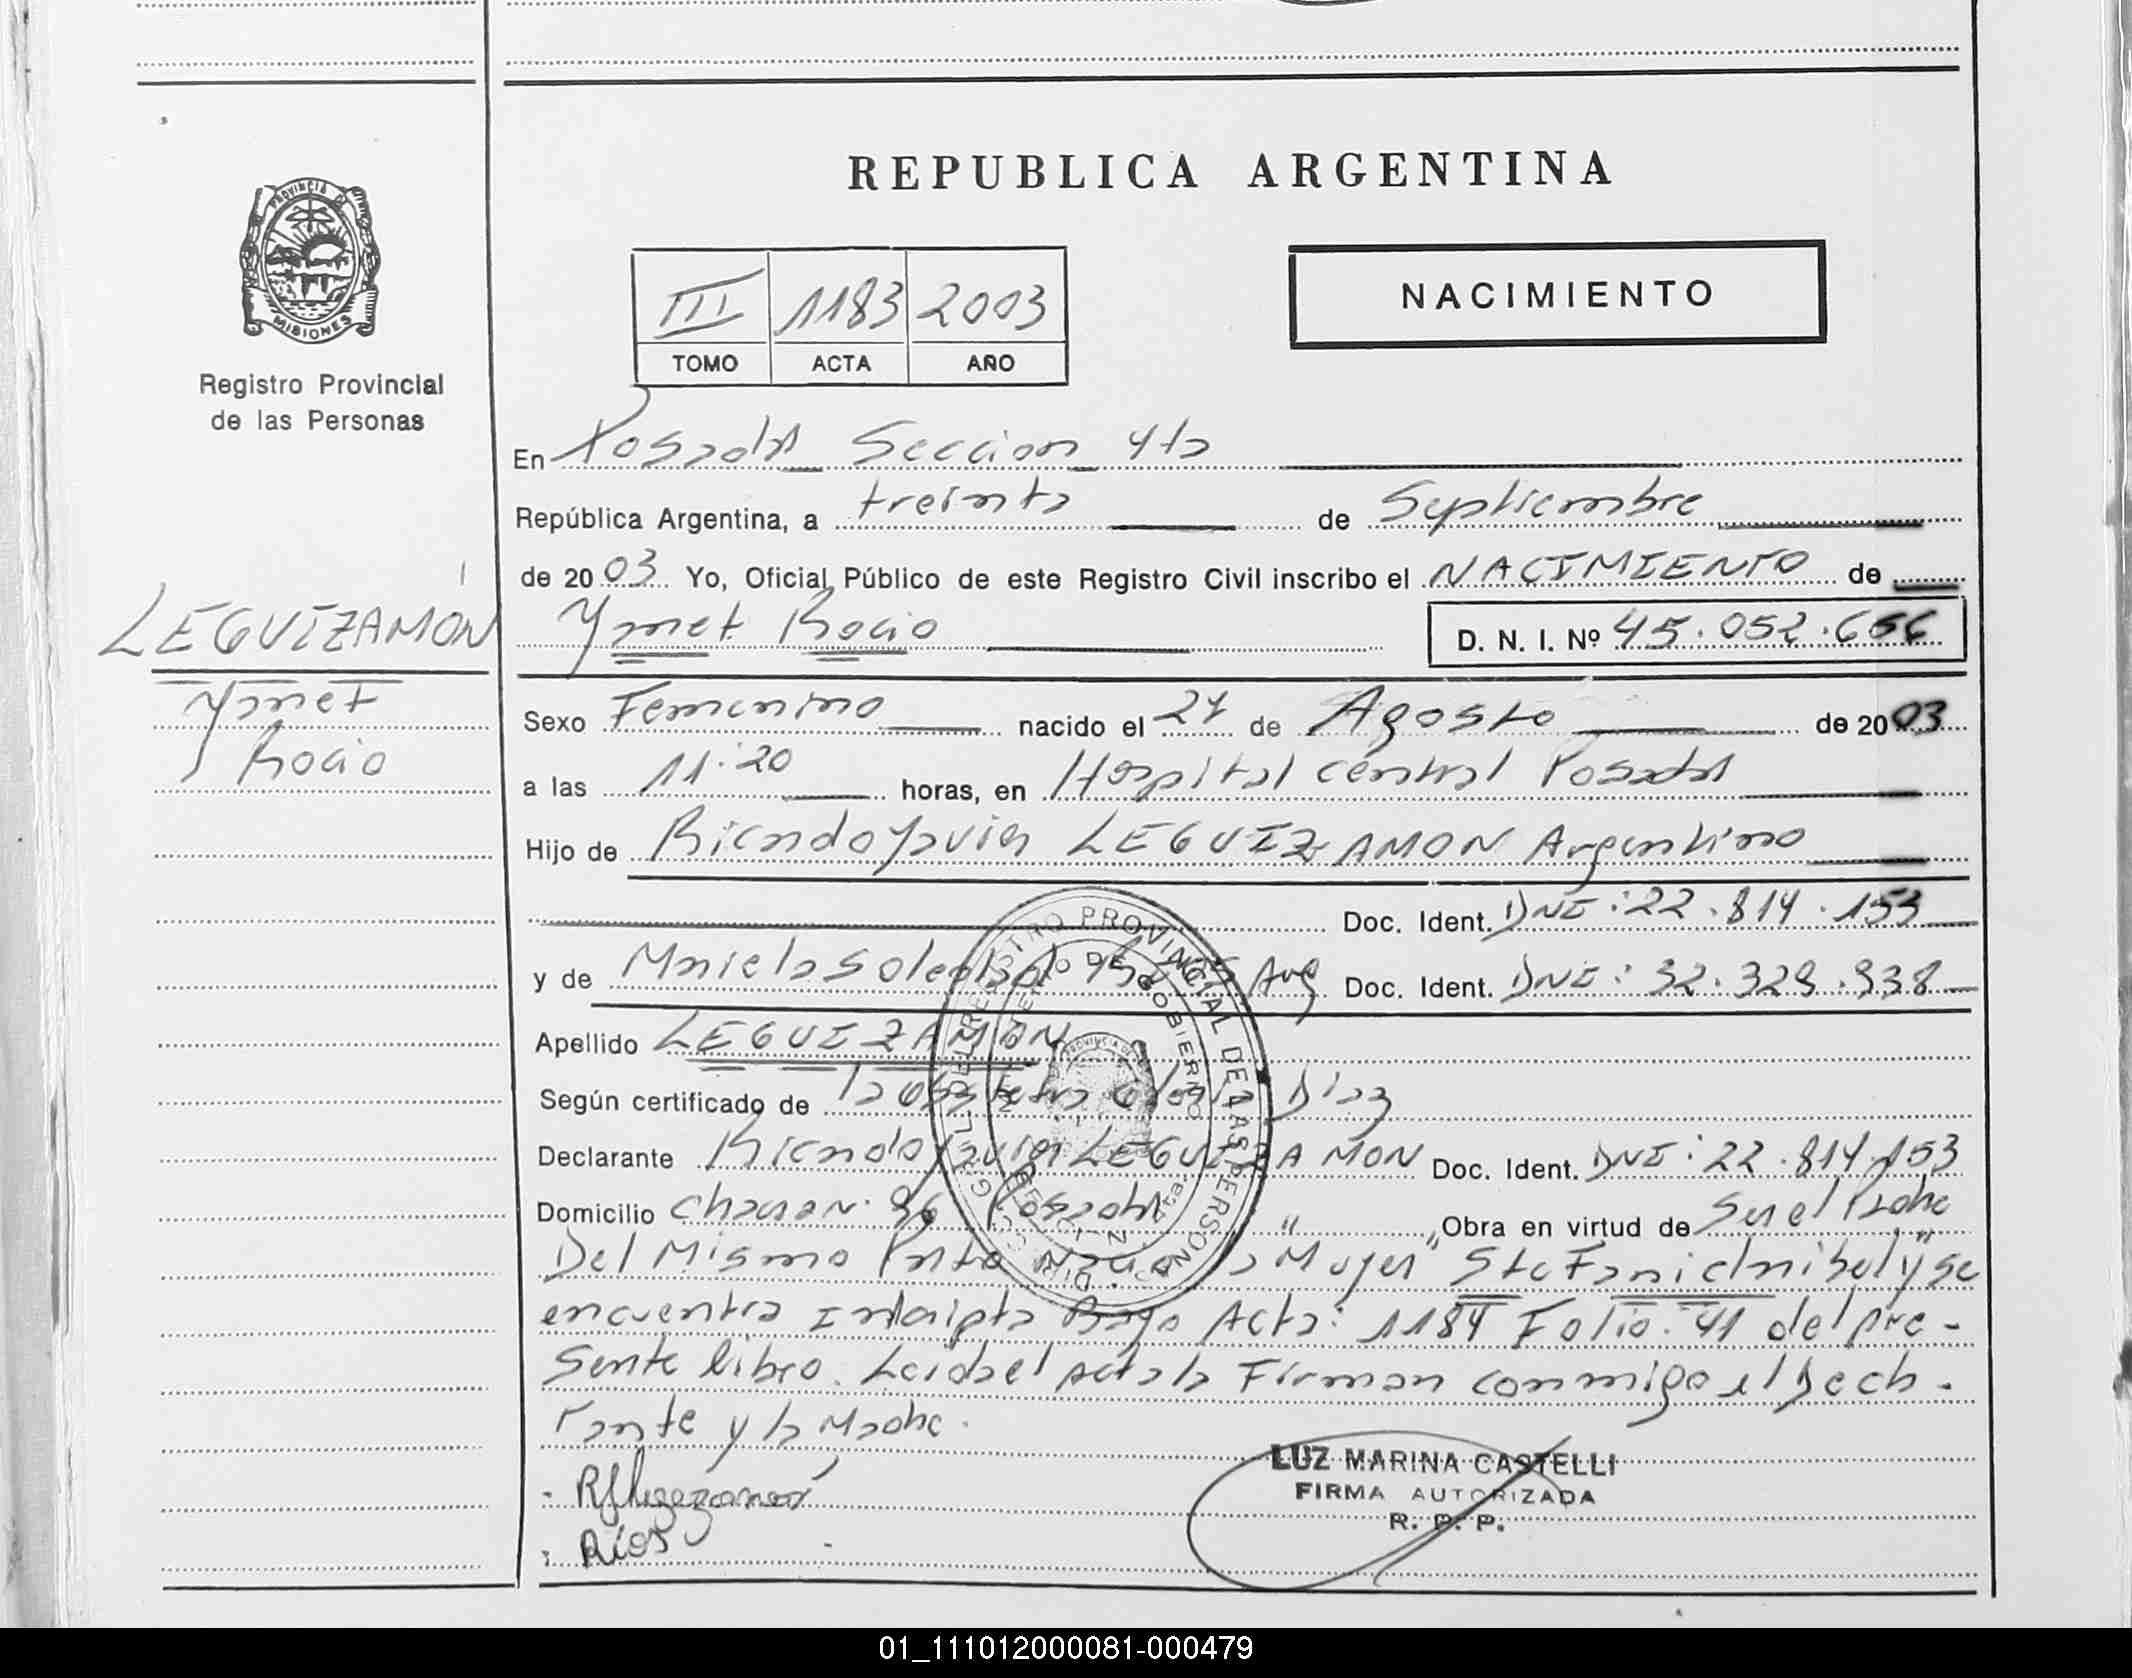 REPUBLICA ARGENTINA
PROVINCIA DE MISIONES
Registro Provincial
de las Personas
III 1183 2003
TOMO ACTA AÑO
NACIMIENTO
En Posadas Seccion 4ta
República Argentina, a treinta de Septiembre
de 20 03 Yo, Oficial Público de este Registro Civil inscribo el NACIMIENTO de
LEGUIZAMON
Yanet
Rocio
Yanet Rocio D. N. I. Nº 45.052.656
Sexo Femenino nacido el 27 de Agosto de 20 03
a las 11:20 horas, en Hospital central Posadas
Hijo de Ricardo Javier LEGUIZAMON Argentino
Doc. Ident. DNI: 22.814.153
y de Mariela Soledad Arg Doc. Ident. DNI: 32.329.938
Apellido LEGUIZAMON
Según certificado de la obstetra Diaz
Declarante Ricardo Javier LEGUIZAMON Doc. Ident. DNI: 22.814.153
Domicilio 96 Posadas " " Obra en virtud de Ser el Padre
Del Mismo Parto Nacio la Mujer y se
encuentra Inscripta Bajo Acta: 1184 Folio. 41 del pre-
sente libro. Leida el acta la Firman conmigo el Decla-
rante y la Madre.
Rios
LUZ MARINA CASTELLI
FIRMA AUTORIZADA
R. P. P.
01_111012000081-000479